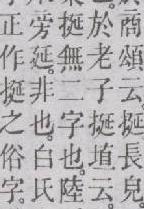 商頌云。挻長皃
於老子挻埴云。
挻無二字也。陸
旁延。非也。白氏
正作挻之俗字。